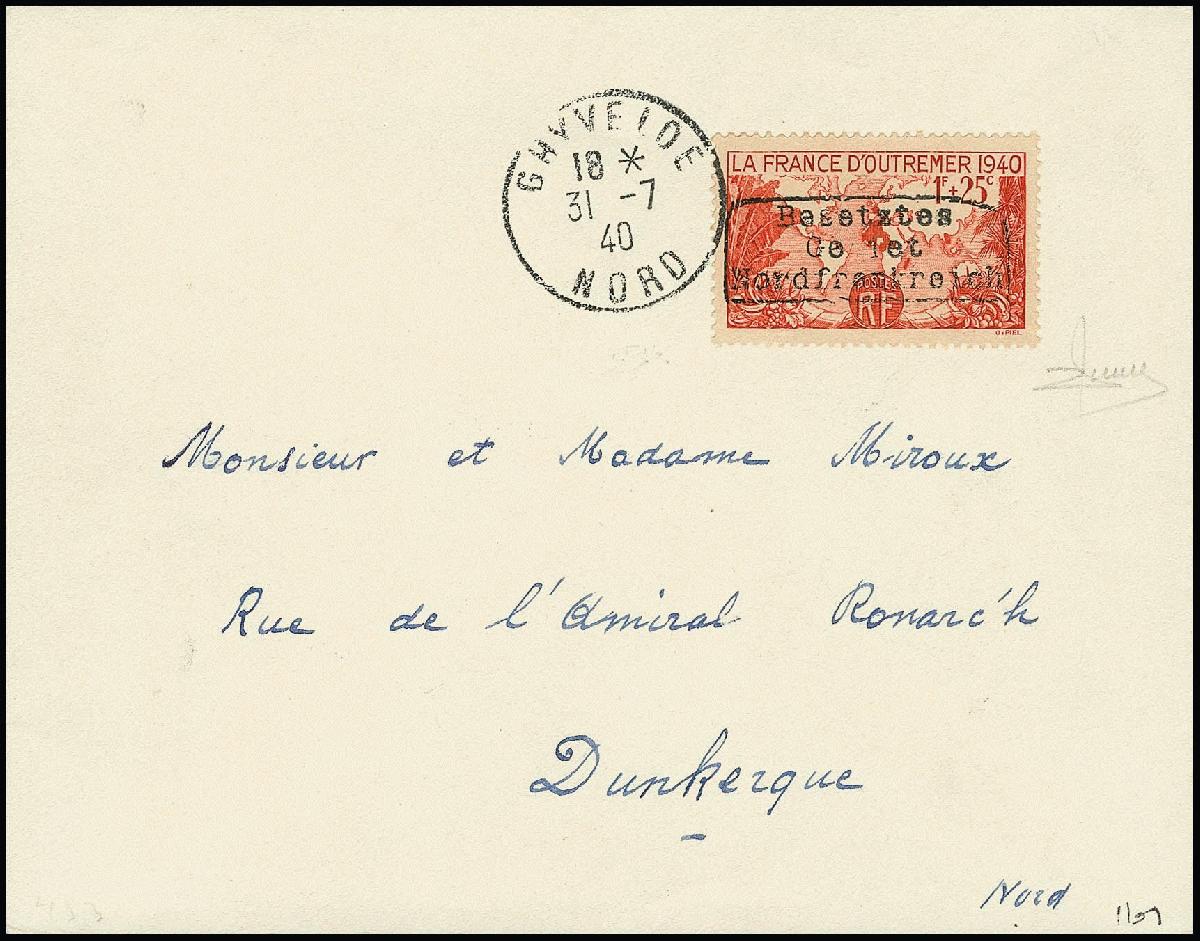 GHYVELDE
18 *
31 -7
40
NORD
LA FRANCE D'OUTREMER 1940
1F + 25C
Besetztes
Ge iet
Nordfrankreich
RF
Monsieur et Madame Miroux
Rue de l'Amiral Ronarc'h
Dunkerque
Nord